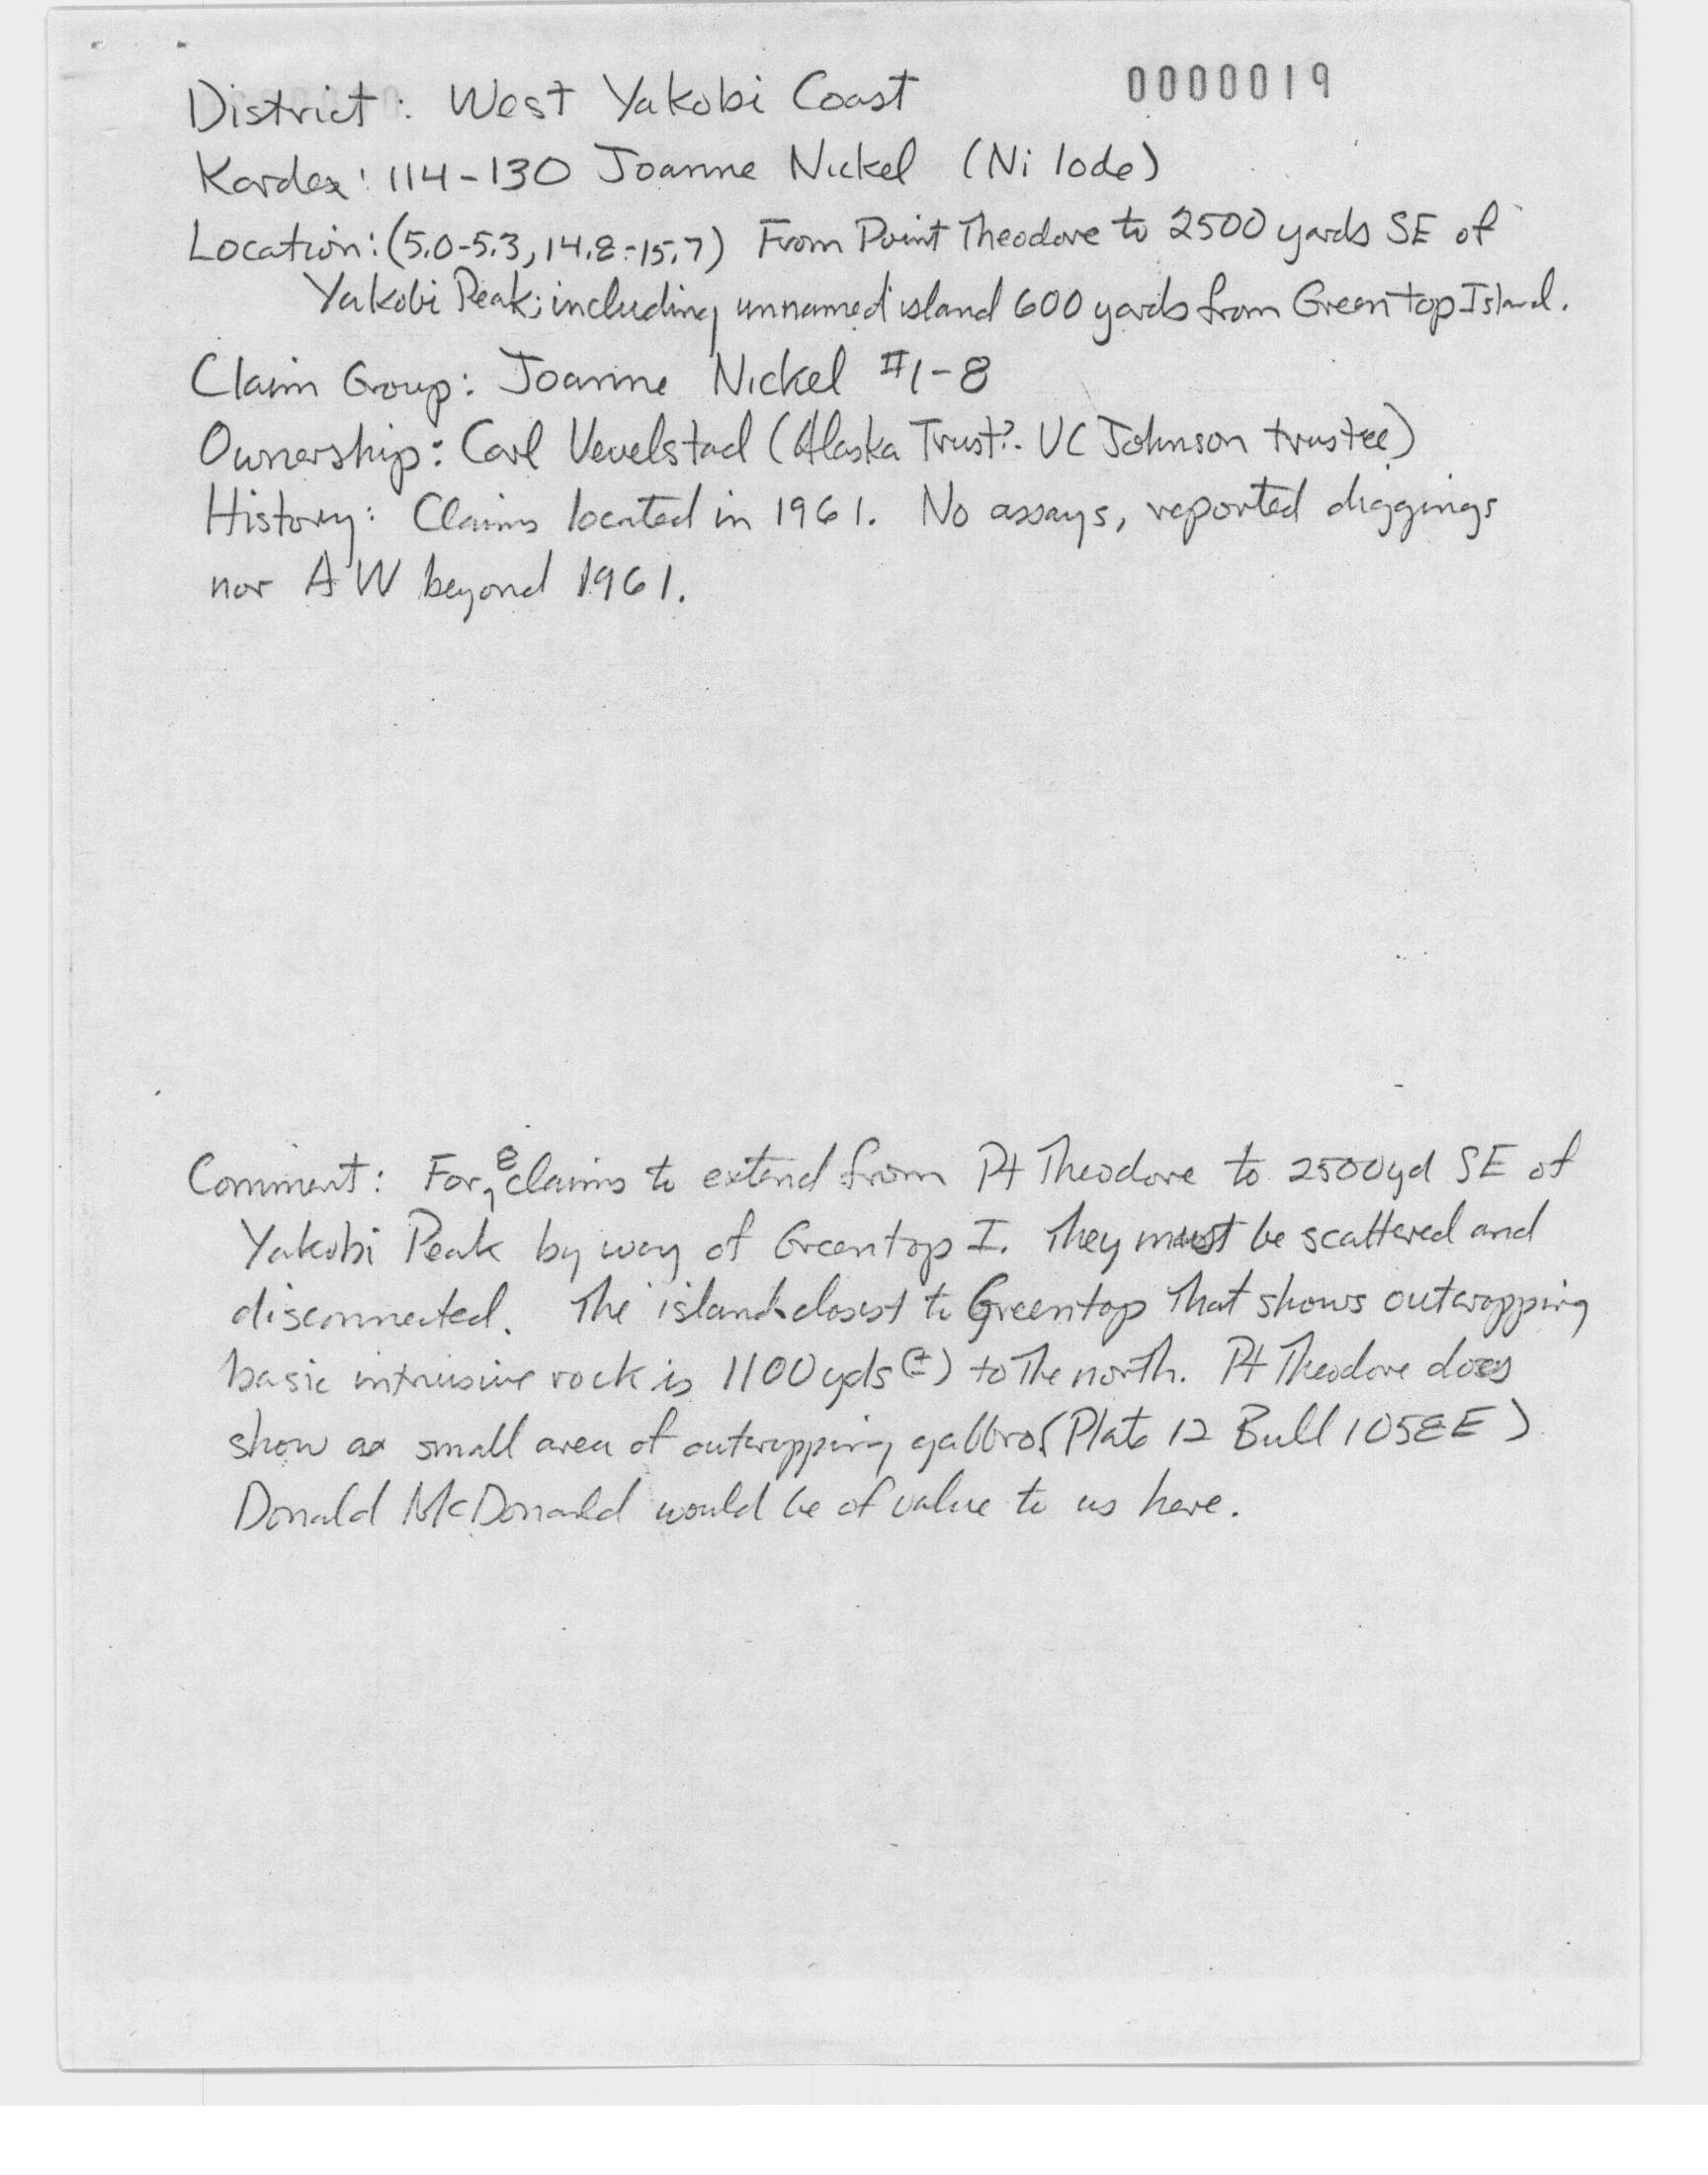 0000019
District: West Yakobi Coast
Kardex: 114-130 Joanne Nickel (Ni lode)
Location: (5.0-5.3, 14.8-15.7) From Point Theodore to 2500 yards SE of
Yakobi Peak; including unnamed island 600 yards from Greentop Island.
Claim Group: Joanne Nickel #1-8
Ownership: Carl Vevelstad (Alaska Trust?- VC Johnson trustee)
History: Claims located in 1961. No assays, reported diggings
nor AW beyond 1961.
Comment: For 8 claims to extend from Pt Theodore to 2500yd SE of
Yakobi Peak by way of Greentop I. They must be scattered and
disconnected. The island closest to Greentop that shows outcropping
basic intrusive rock is 1100 yds (±) to the north. Pt Theodore does
show a small area of outcropping gabbro (Plate 12 Bull 1058E)
Donald McDonald would be of value to us here.